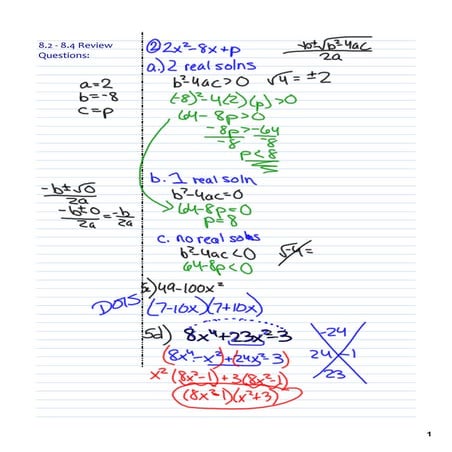 8.2 - 8.4 Review
Questions:
a=2
b=-8
c=p
② 2x²-8x+p
-b±√b²-4ac
2a
a.) 2 real solns
b²-4ac>0
√4 = ±2
(-8)²-4(2)(p)>0
64-8p>0
-8p>-64
-8 -8
p<8
b. 1 real soln
b²-4ac=0
64-8p=0
p=8
-b±√0
2a
-b±0 = -b
2a 2a
c. no real solns
b²-4ac<0
64-8p<0
√-4 =
5c) 49-100x²
DOTS (7-10x)(7+10x)
5d) 8x⁴+23x²-3
(8x⁴-x²)+(24x²-3)
x²(8x²-1)+3(8x²-1)
(8x²-1)(x²+3)
-24
24 -1
23
1